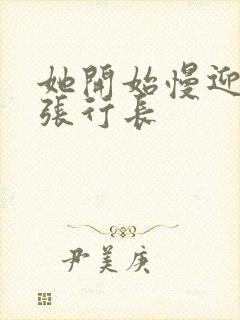 她開始慢迎
張行長
尹美庚